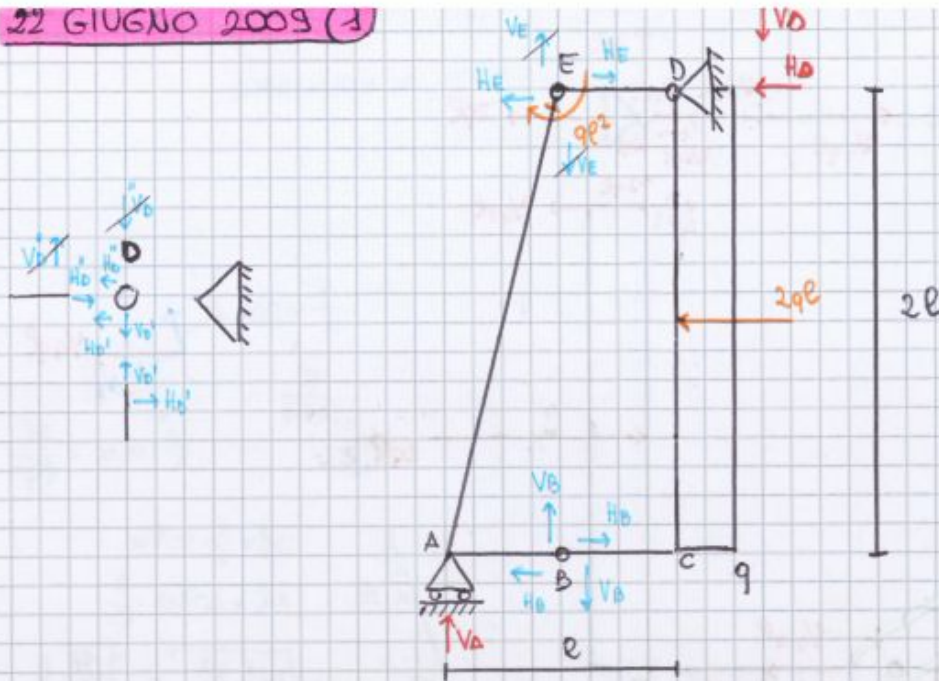 22 GIUGNO 2009 (1)
VE
HE
E
HE
qℓ²
VE
D
VD
HD
VD"
VD"
D
HD"
HD"
HD'
VD'
VD'
HD'
2qℓ
2ℓ
VB
HB
A
B
C
q
HB
VB
VA
ℓ